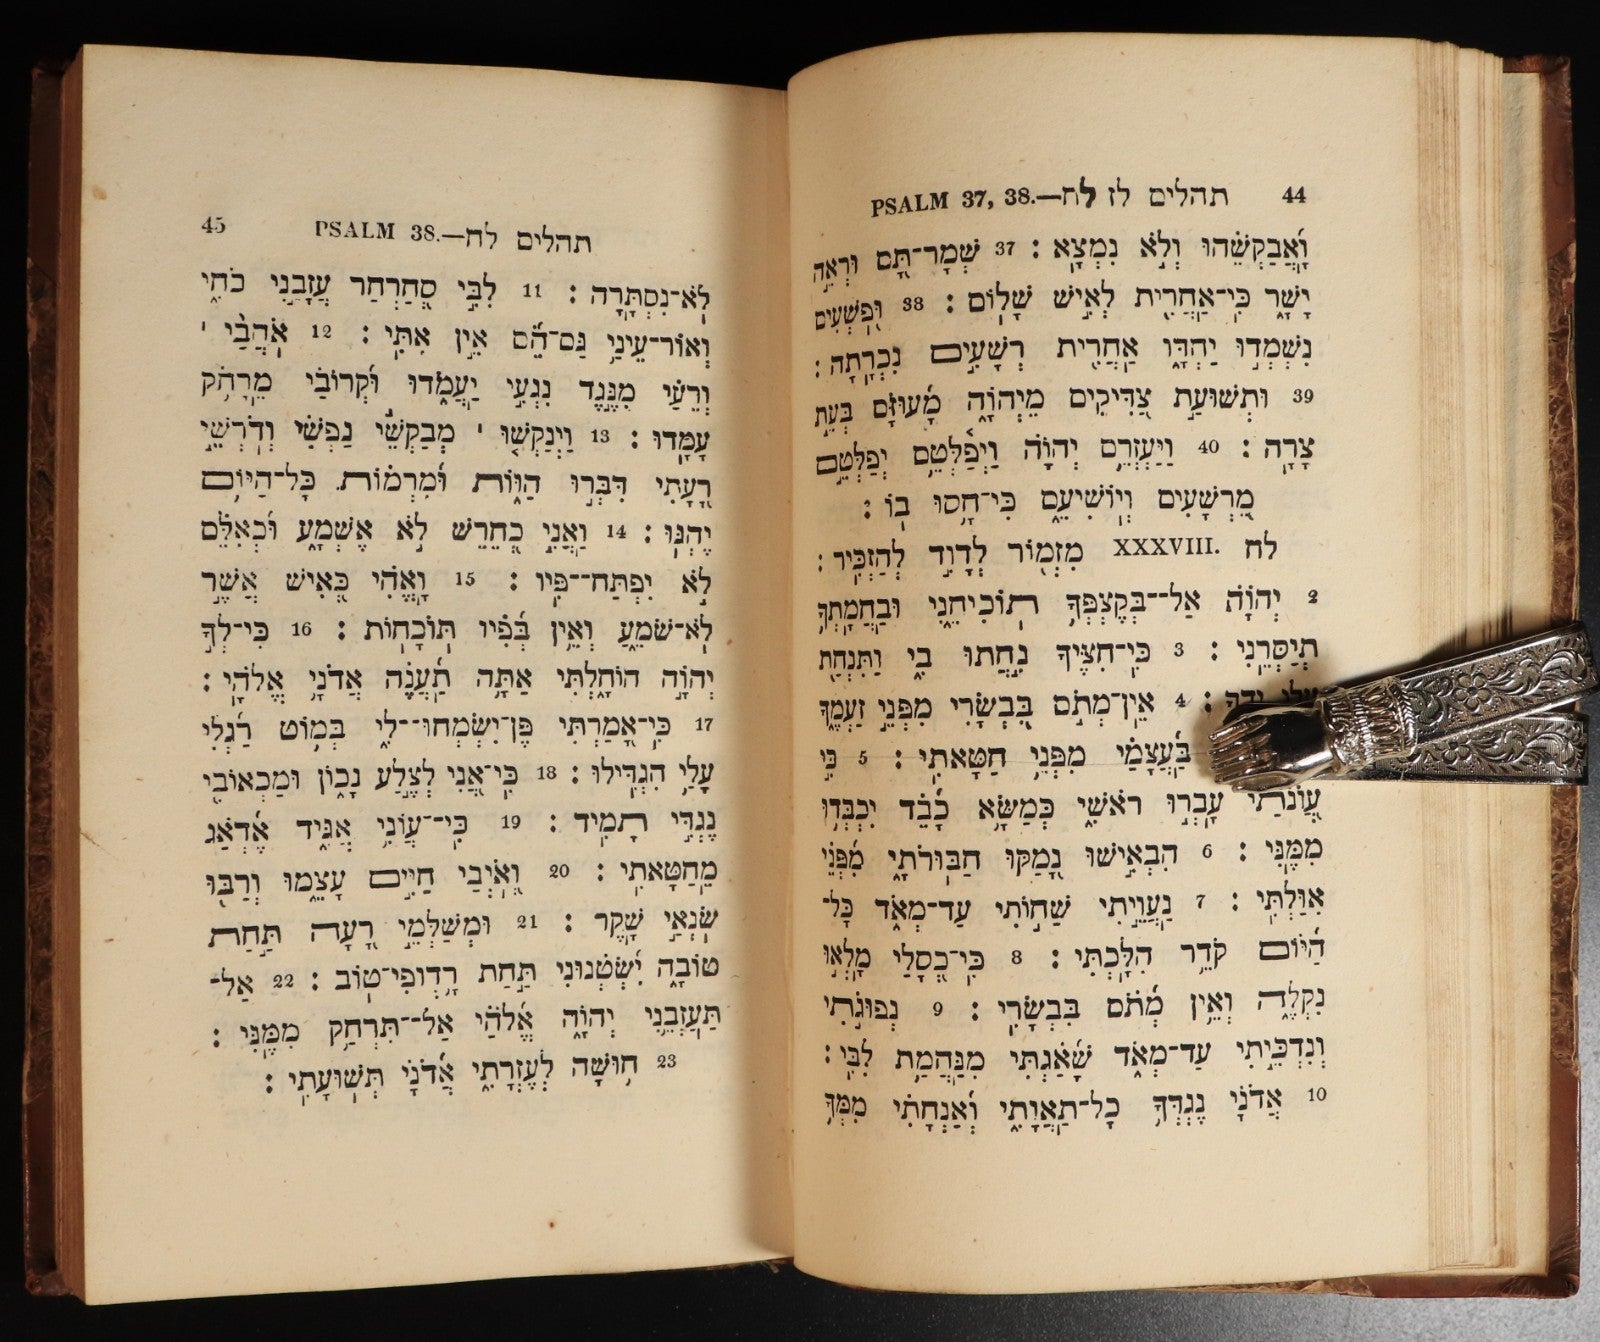 44 תהלים לז לח—.PSALM 37, 38
וָ֝אֲבַקְשֵׁ֗הוּ וְלֹ֣א נִמְצָֽא׃ 37 שְׁמָר־תָּ֭ם וּרְאֵ֣ה
יָשָׁ֑ר כִּֽי־אַחֲרִ֖ית לְאִ֣ישׁ שָׁלֽוֹם׃ 38 וּֽ֭פֹשְׁעִים
נִשְׁמְד֣וּ יַחְדָּ֑ו אַחֲרִ֖ית רְשָׁעִ֣ים נִכְרָֽתָה׃
39 וּתְשׁוּעַ֣ת צַ֭דִּיקִים מֵיְהוָ֑ה מָֽ֝עוּזָּ֗ם בְּעֵ֣ת
צָרָֽה׃ 40 וַֽיַּעְזְרֵ֥ם יְהוָ֗ה וַֽיְפַ֫לְּטֵ֥ם יְפַלְּטֵ֣ם
מֵ֭רְשָׁעִים וְיֽוֹשִׁיעֵ֑ם כִּי־חָ֥סוּ בֽוֹ׃
לח XXXVIII. מִזְמ֖וֹר לְדָוִ֣ד לְהַזְכִּֽיר׃
2 יְהוָ֗ה אַל־־בְּקֶצְפְּךָ֥ תוֹכִיחֵ֑נִי וּֽבַחֲמָתְךָ֥
תְיַסְּרֵֽנִי׃ 3 כִּֽי־חִ֭צֶּיךָ נִ֣חֲתוּ בִ֑י וַתִּנְחַ֖ת
עָלַ֣י יָדֶֽךָ׃ 4 אֵין־מְתֹ֣ם בִּ֭בְשָׂרִי מִפְּנֵ֣י זַעְמֶ֑ךָ
בַּ֝עֲצָמַ֗י מִפְּנֵ֥י חַטָּאתִֽי׃ 5 כִּ֣י
עֲ֭וֺנֹתַי עָבְר֣וּ רֹאשִׁ֑י כְּמַשָּׂ֥א כָ֝בֵ֗ד יִכְבְּד֥וּ
מִמֶּֽנִּי׃ 6 הִבְאִ֣ישׁוּ נָ֭מַקּוּ חַבּוּרֹתָ֑י מִ֝פְּנֵ֗י
אִוַּלְתִּֽי׃ 7 נַעֲוֵ֣יתִי שַׁחֹ֣תִי עַד־מְאֹ֑ד כָּל־
הַ֝יּ֗וֹם קֹדֵ֥ר הִלָּֽכְתִּי׃ 8 כִּֽי־כְ֭סָלַי מָלְא֣וּ
נִקְלֶ֑ה וְאֵ֥ין מְ֝תֹ֗ם בִּבְשָׂרִֽי׃ 9 נְפוּג֣וֹתִי
וְנִדְכֵּ֣יתִי עַד־מְאֹ֑ד שָׁ֝אַ֗גְתִּי מִֽנַּהֲמַ֥ת לִבִּֽי׃
10 אֲ‍ֽדֹנָי נֶגְדְּךָ֥ כָל־תַּאֲוָתִ֑י וְ֝אַנְחָתִ֗י מִמְּךָ֥
45 תהלים לח—.PSALM 38
לֹא־נִסְתָּֽרָה׃ 11 לִבִּ֣י סְ֭חַרְחַר עֲזָבַ֣נִי כֹחִ֑י
וְֽאוֹר־עֵינַ֥י גַּם־הֵ֝֗ם אֵ֣ין אִתִּֽי׃ 12 אֹֽהֲבַ֨י ׀
וְרֵעַ֗י מִנֶּ֣גֶד נִגְעִ֣י יַעֲמֹ֑דוּ וּ֝קְרוֹבַ֗י מֵרָחֹ֥ק
עָמָֽדוּ׃ 13 וַיְנַקְשׁ֤וּ ׀ מְבַקְשֵׁ֬י נַפְשִׁ֗י וְדֹרְשֵׁ֣י
רָ֭עָתִי דִּבְּר֣וּ הַוּ֑וֹת וּ֝מִרְמ֗וֹת כָּל־הַיּ֥וֹם
יֶהְגּֽוּ׃ 14 וַאֲנִ֣י כְ֭חֵרֵשׁ לֹ֣א אֶשְׁמָ֑ע וּ֝כְאִלֵּ֗ם
לֹ֣א יִפְתַּח־־פִּֽיו׃ 15 וָאֱהִ֗י כְּ֭אִישׁ אֲשֶׁ֣ר
לֹא־שֹׁמֵ֑עַ וְאֵ֥ין בְּ֝פִ֗יו תּוֹכָחֽוֹת׃ 16 כִּֽי־לְךָ֣
יְהוָ֣ה הוֹחָ֑לְתִּי אַתָּ֥ה תַ֝עֲנֶ֗ה אֲדֹנָ֥י אֱלֹהָֽי׃
17 כִּֽי־אָ֭מַרְתִּי פֶּן־יִשְׂמְחוּ־־לִ֑י בְּמ֥וֹט רַ֝גְלִ֗י
עָלַ֥י הִגְדִּֽילוּ׃ 18 כִּֽי־אֲ֭נִי לְצֶ֣לַע נָכ֑וֹן וּמַכְאוֹבִ֖י
נֶגְדִּ֣י תָמִֽיד׃ 19 כִּֽי־־עֲוֺנִ֥י אַגִּ֑יד אֶ֝דְאַ֗ג
מֵֽחַטָּאתִֽי׃ 20 וְֽ֭אֹיְבַי חַיִּ֣ים עָצֵ֑מוּ וְרַבּ֖וּ
שֹׂנְאַ֣י שָֽׁקֶר׃ 21 וּמְשַׁלְּמֵ֣י רָ֭עָה תַּ֣חַת
טוֹבָ֑ה יִ֝שְׂטְנ֗וּנִי תַּ֣חַת רָֽדְופִי־טֽוֹב׃ 22 אַל־
תַּעַזְבֵ֥נִי יְהוָ֑ה אֱ֝לֹהַ֗י אַל־־תִּרְחַ֥ק מִמֶּֽנִּי׃
23 ח֥וּשָׁה לְעֶזְרָתִ֑י אֲ֝דֹנָ֗י תְּשׁוּעָתִֽי׃